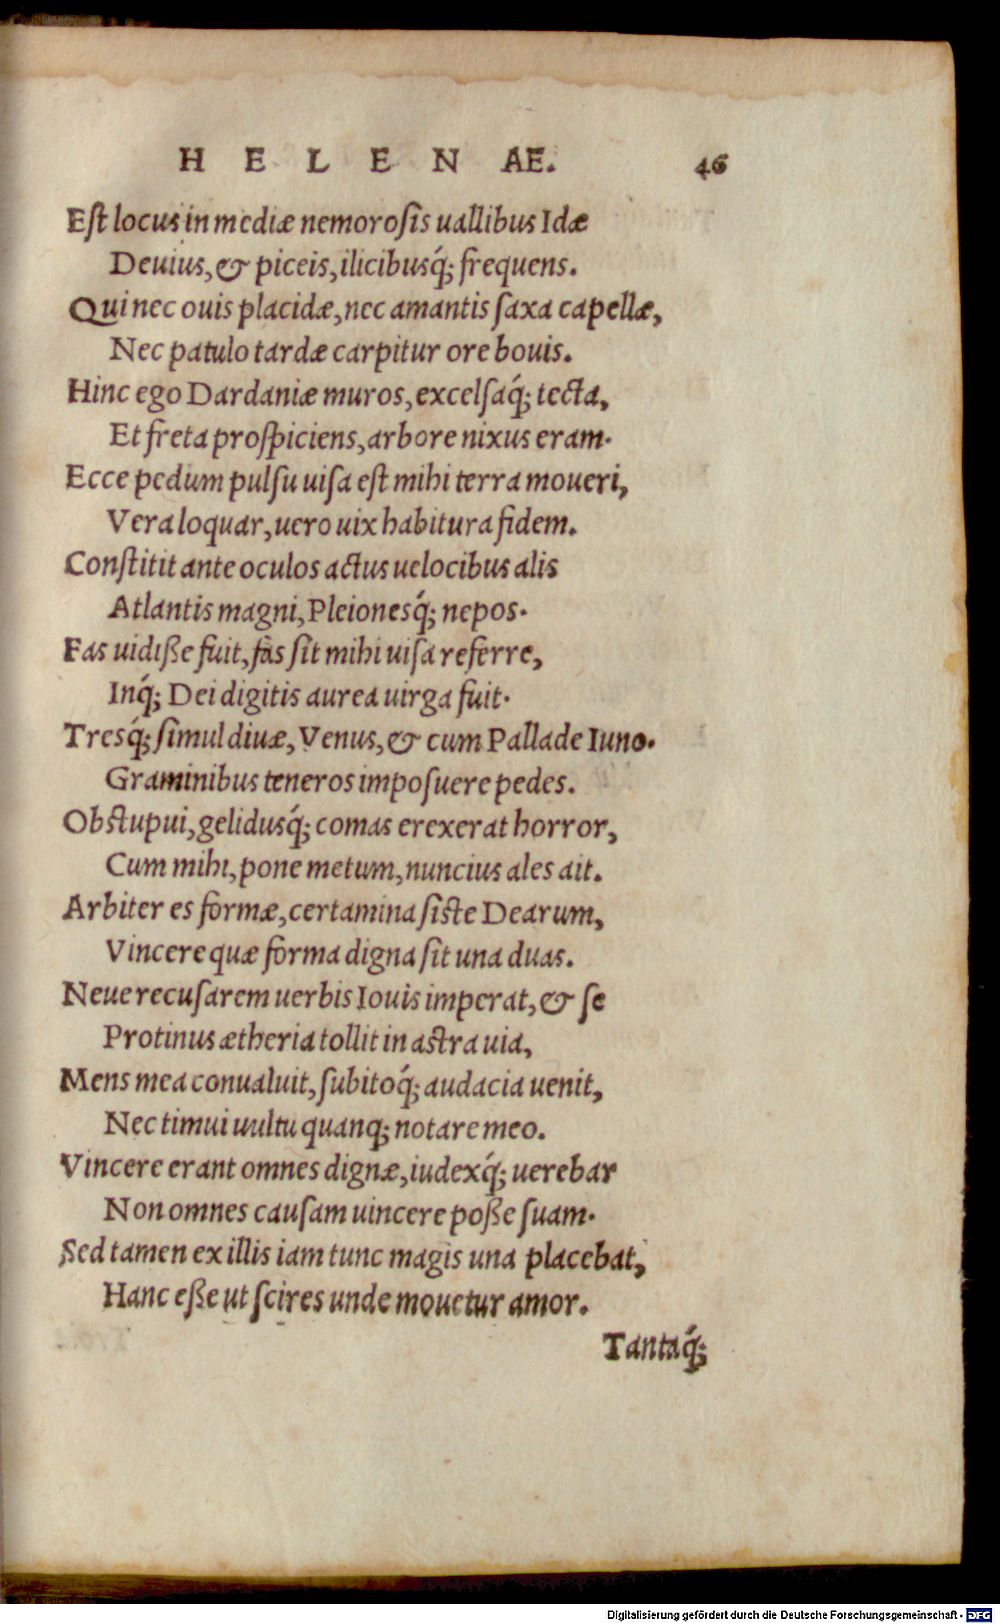 H E L E N AE. 46
Est locus in mediæ nemorosis uallibus Idæ
Deuius, & piceis, ilicibusq́; frequens.
Qui nec ouis placidæ, nec amantis saxa capellæ,
Nec patulo tardæ carpitur ore bouis.
Hinc ego Dardaniæ muros, excelsaq́; tecta,
Et freta prospiciens, arbore nixus eram.
Ecce pedum pulsu uisa est mihi terra moueri,
Vera loquar, uero uix habitura fidem.
Constitit ante oculos actus uelocibus alis
Atlantis magni, Pleionesq́; nepos.
Fas uidiße fuit, fas sit mihi uisa referre,
Inq́; Dei digitis aurea uirga fuit.
Tresq́; simul diuæ, Venus, & cum Pallade Iuno.
Graminibus teneros imposuere pedes.
Obstupui, gelidusq́; comas erexerat horror,
Cum mihi, pone metum, nuncius ales ait.
Arbiter es formæ, certamina siste Dearum,
Vincere quæ forma digna sit una duas.
Neue recusarem uerbis Iouis imperat, & se
Protinus ætheria tollit in astra uia,
Mens mea conualuit, subitoq́; audacia uenit,
Nec timui uultu quanq; notare meo.
Vincere erant omnes dignæ, iudexq́; uerebar
Non omnes causam uincere poße suam.
Sed tamen ex illis iam tunc magis una placebat,
Hanc eße ut scires unde mouetur amor.
Tantaq́;
Digitalisierung gefördert durch die Deutsche Forschungsgemeinschaft - DFG